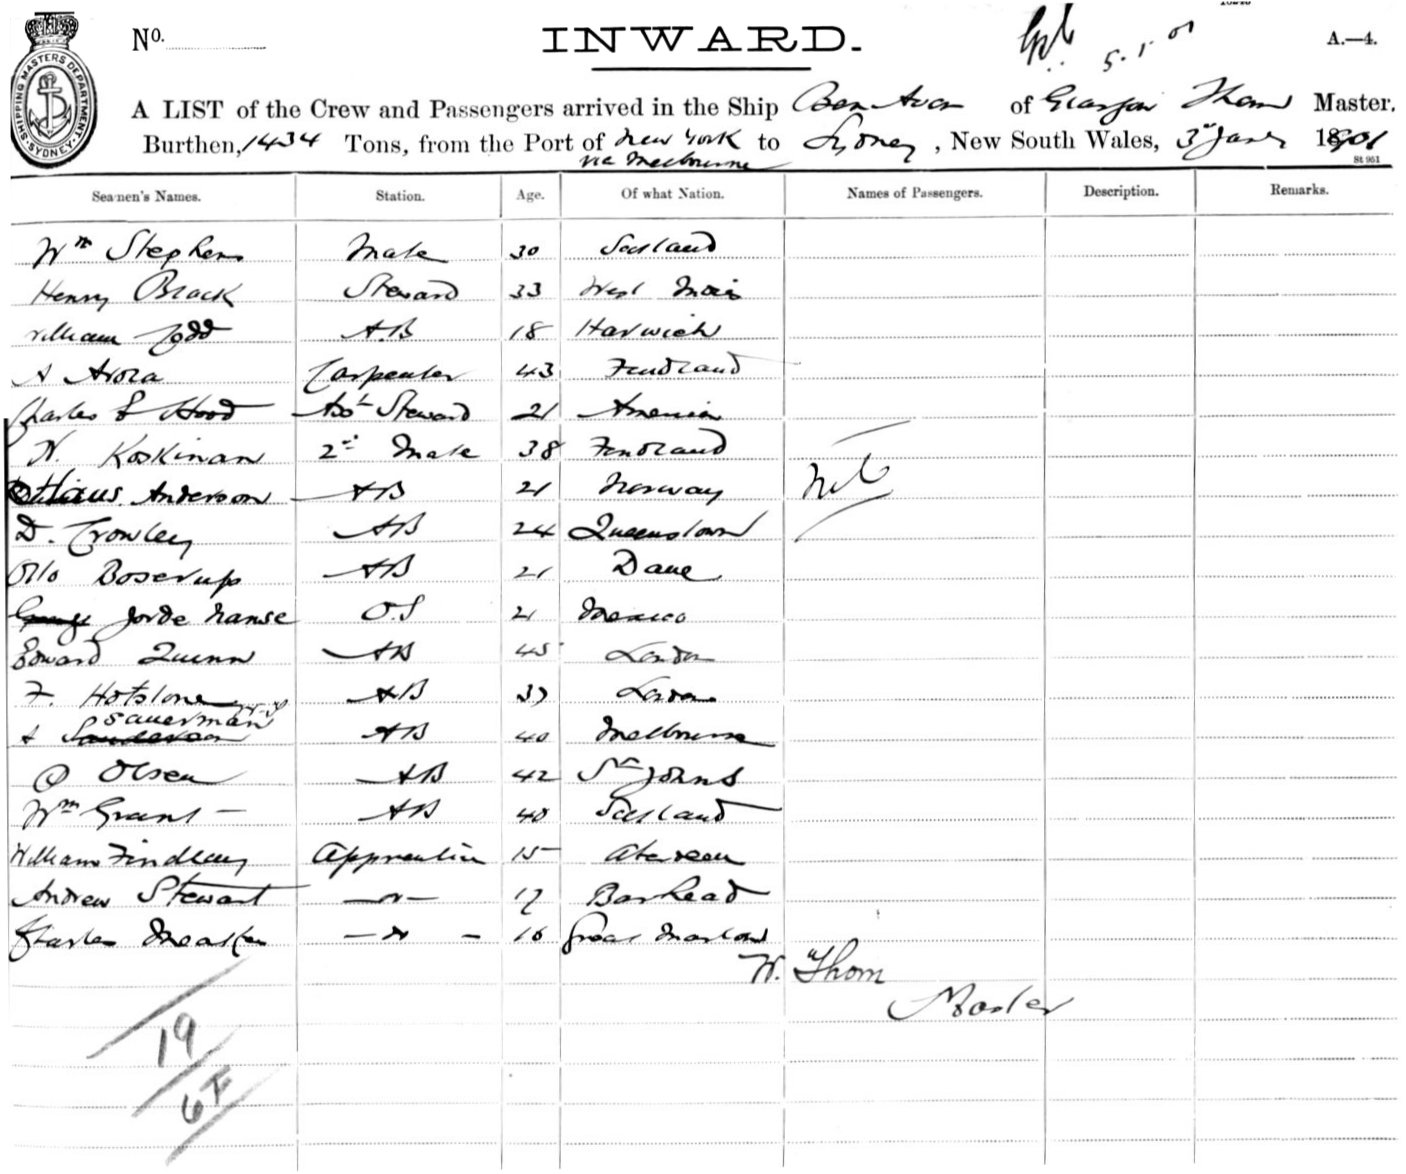 SHIPPING MASTERS DEPARTMENT SYDNEY
No.
INWARD.
5.1.01
A.—4.
A LIST of the Crew and Passengers arrived in the Ship Ben Avon of Glasgow Thom Master,
Burthen, 1434 Tons, from the Port of New York to Sydney, New South Wales, 3rd Jany 1901
via Melbourne
St 951
Seamen's Names. Station. Age. Of what Nation. Names of Passengers. Description. Remarks.
Wm Stephens Mate 30 Scotland
Henry Black Steward 33 West Indies
William Todd A.B 18 Harwich
A Arola Carpenter 43 Findland
Charles E Hood Asst Steward 21 America
N. Koskinan 2nd Mate 38 Findland
Hans Anderson AB 21 Norway Nil
D. Crowley AB 24 Queenstown
Otto Boserup AB 21 Dane
George Jorde Nanse O.S 21 Mexico
Edward Quinn AB 45 London
F. Hotslone AB 37 London
Sauerman
A Sanderson AB 40 Melbourne
O Olsen AB 42 St Johns
Wm Grant – AB 40 Scotland
William Findlay Apprentice 15 Aberdeen
Andrew Stewart 17 Barhead
Charles 16 Great Marlow
W. Thom
Master
19
6F